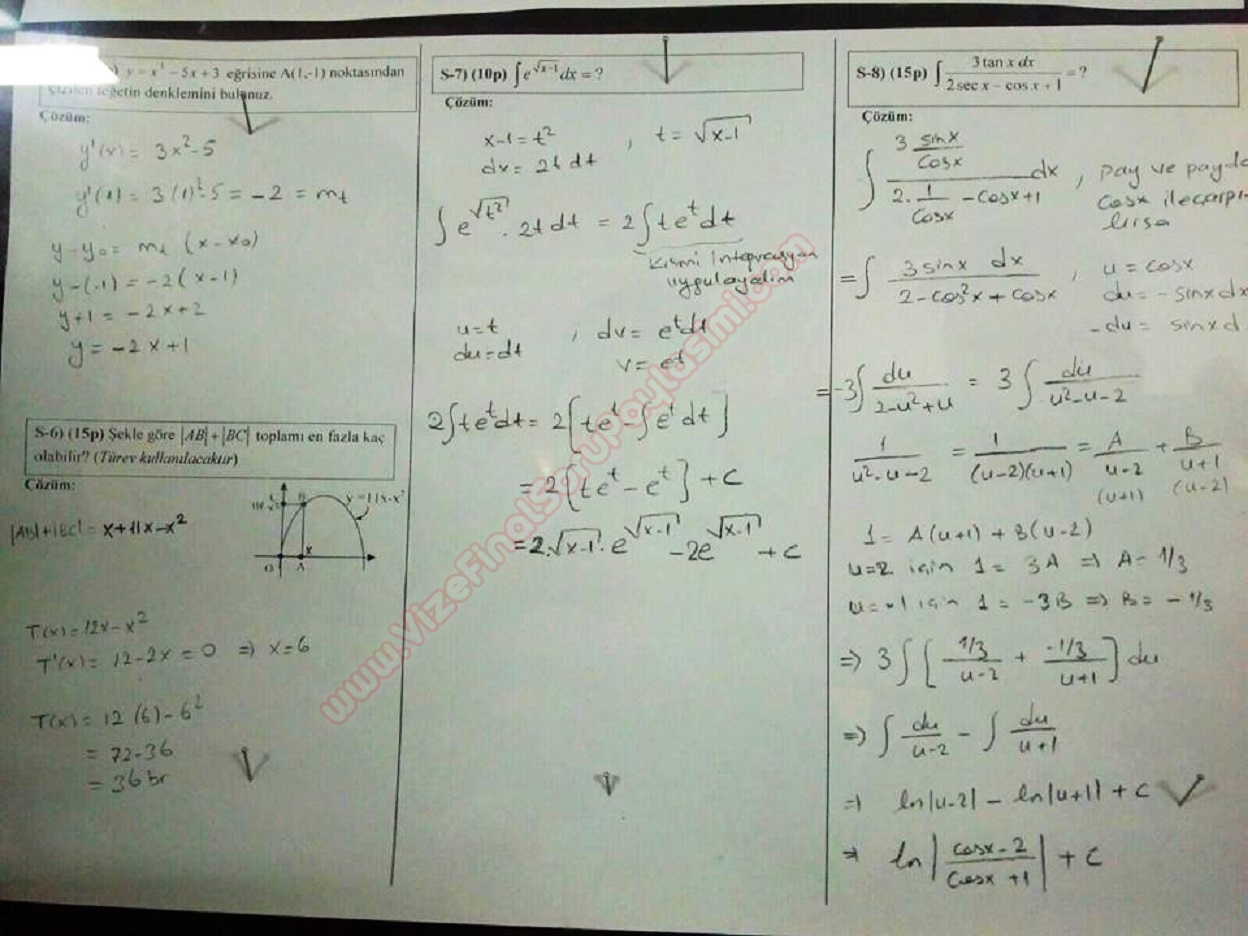 y = x³ − 5x + 3 eğrisine A(1,-1) noktasından
çizilen teğetin denklemini bulunuz.
Çözüm:
y'(x) = 3x² − 5
y'(1) = 3(1)² − 5 = −2 = m_t
y − y₀ = m_t (x − x₀)
y − (−1) = −2(x − 1)
y + 1 = −2x + 2
y = −2x + 1
S-6) (15p) Şekle göre |AB| + |BC| toplamı en fazla kaç
olabilir? (Türev kullanılacaktır)
Çözüm:
|AB| + |BC| = x + 11x − x²
y = 11x − x²
C B
x
O A
T(x) = 12x − x²
T'(x) = 12 − 2x = 0 ⇒ x = 6
T(x) = 12(6) − 6²
= 72 − 36
= 36 br
S-7) (10p) ∫ e^√(x−1) dx = ?
Çözüm:
x − 1 = t² , t = √(x−1)
dx = 2t dt
∫ e^√(t²) · 2t dt = 2∫ t e^t dt
Kısmi İntegrasyon
uygulayalım
u = t , dv = e^t dt
du = dt v = e^t
2∫ t e^t dt = 2[t e^t − ∫ e^t dt]
= 2[t e^t − e^t] + C
= 2·√(x−1)·e^√(x−1) − 2e^√(x−1) + C
S-8) (15p) ∫ (3 tan x dx)/(2 sec x − cos x + 1) = ?
Çözüm:
∫ (3 sinx/cosx)/(2·1/cosx − cosx + 1) dx , pay ve payda
cosx ile çarpı-
lırsa
= ∫ (3 sinx dx)/(2 − cos²x + cosx) , u = cosx
du = −sinx dx
−du = sinx d
= −3∫ du/(2 − u² + u) = 3∫ du/(u² − u − 2)
1/(u² − u − 2) = 1/((u−2)(u+1)) = A/(u−2) + B/(u+1)
(u+1) (u−2)
1 = A(u+1) + B(u−2)
u = 2 için 1 = 3A ⇒ A = 1/3
u = −1 için 1 = −3B ⇒ B = −1/3
⇒ 3∫ [(1/3)/(u−2) + (−1/3)/(u+1)] du
⇒ ∫ du/(u−2) − ∫ du/(u+1)
⇒ ln|u−2| − ln|u+1| + C
⇒ ln |(cosx − 2)/(cosx + 1)| + C
www.VizeFinalSoruPaylasimi.com